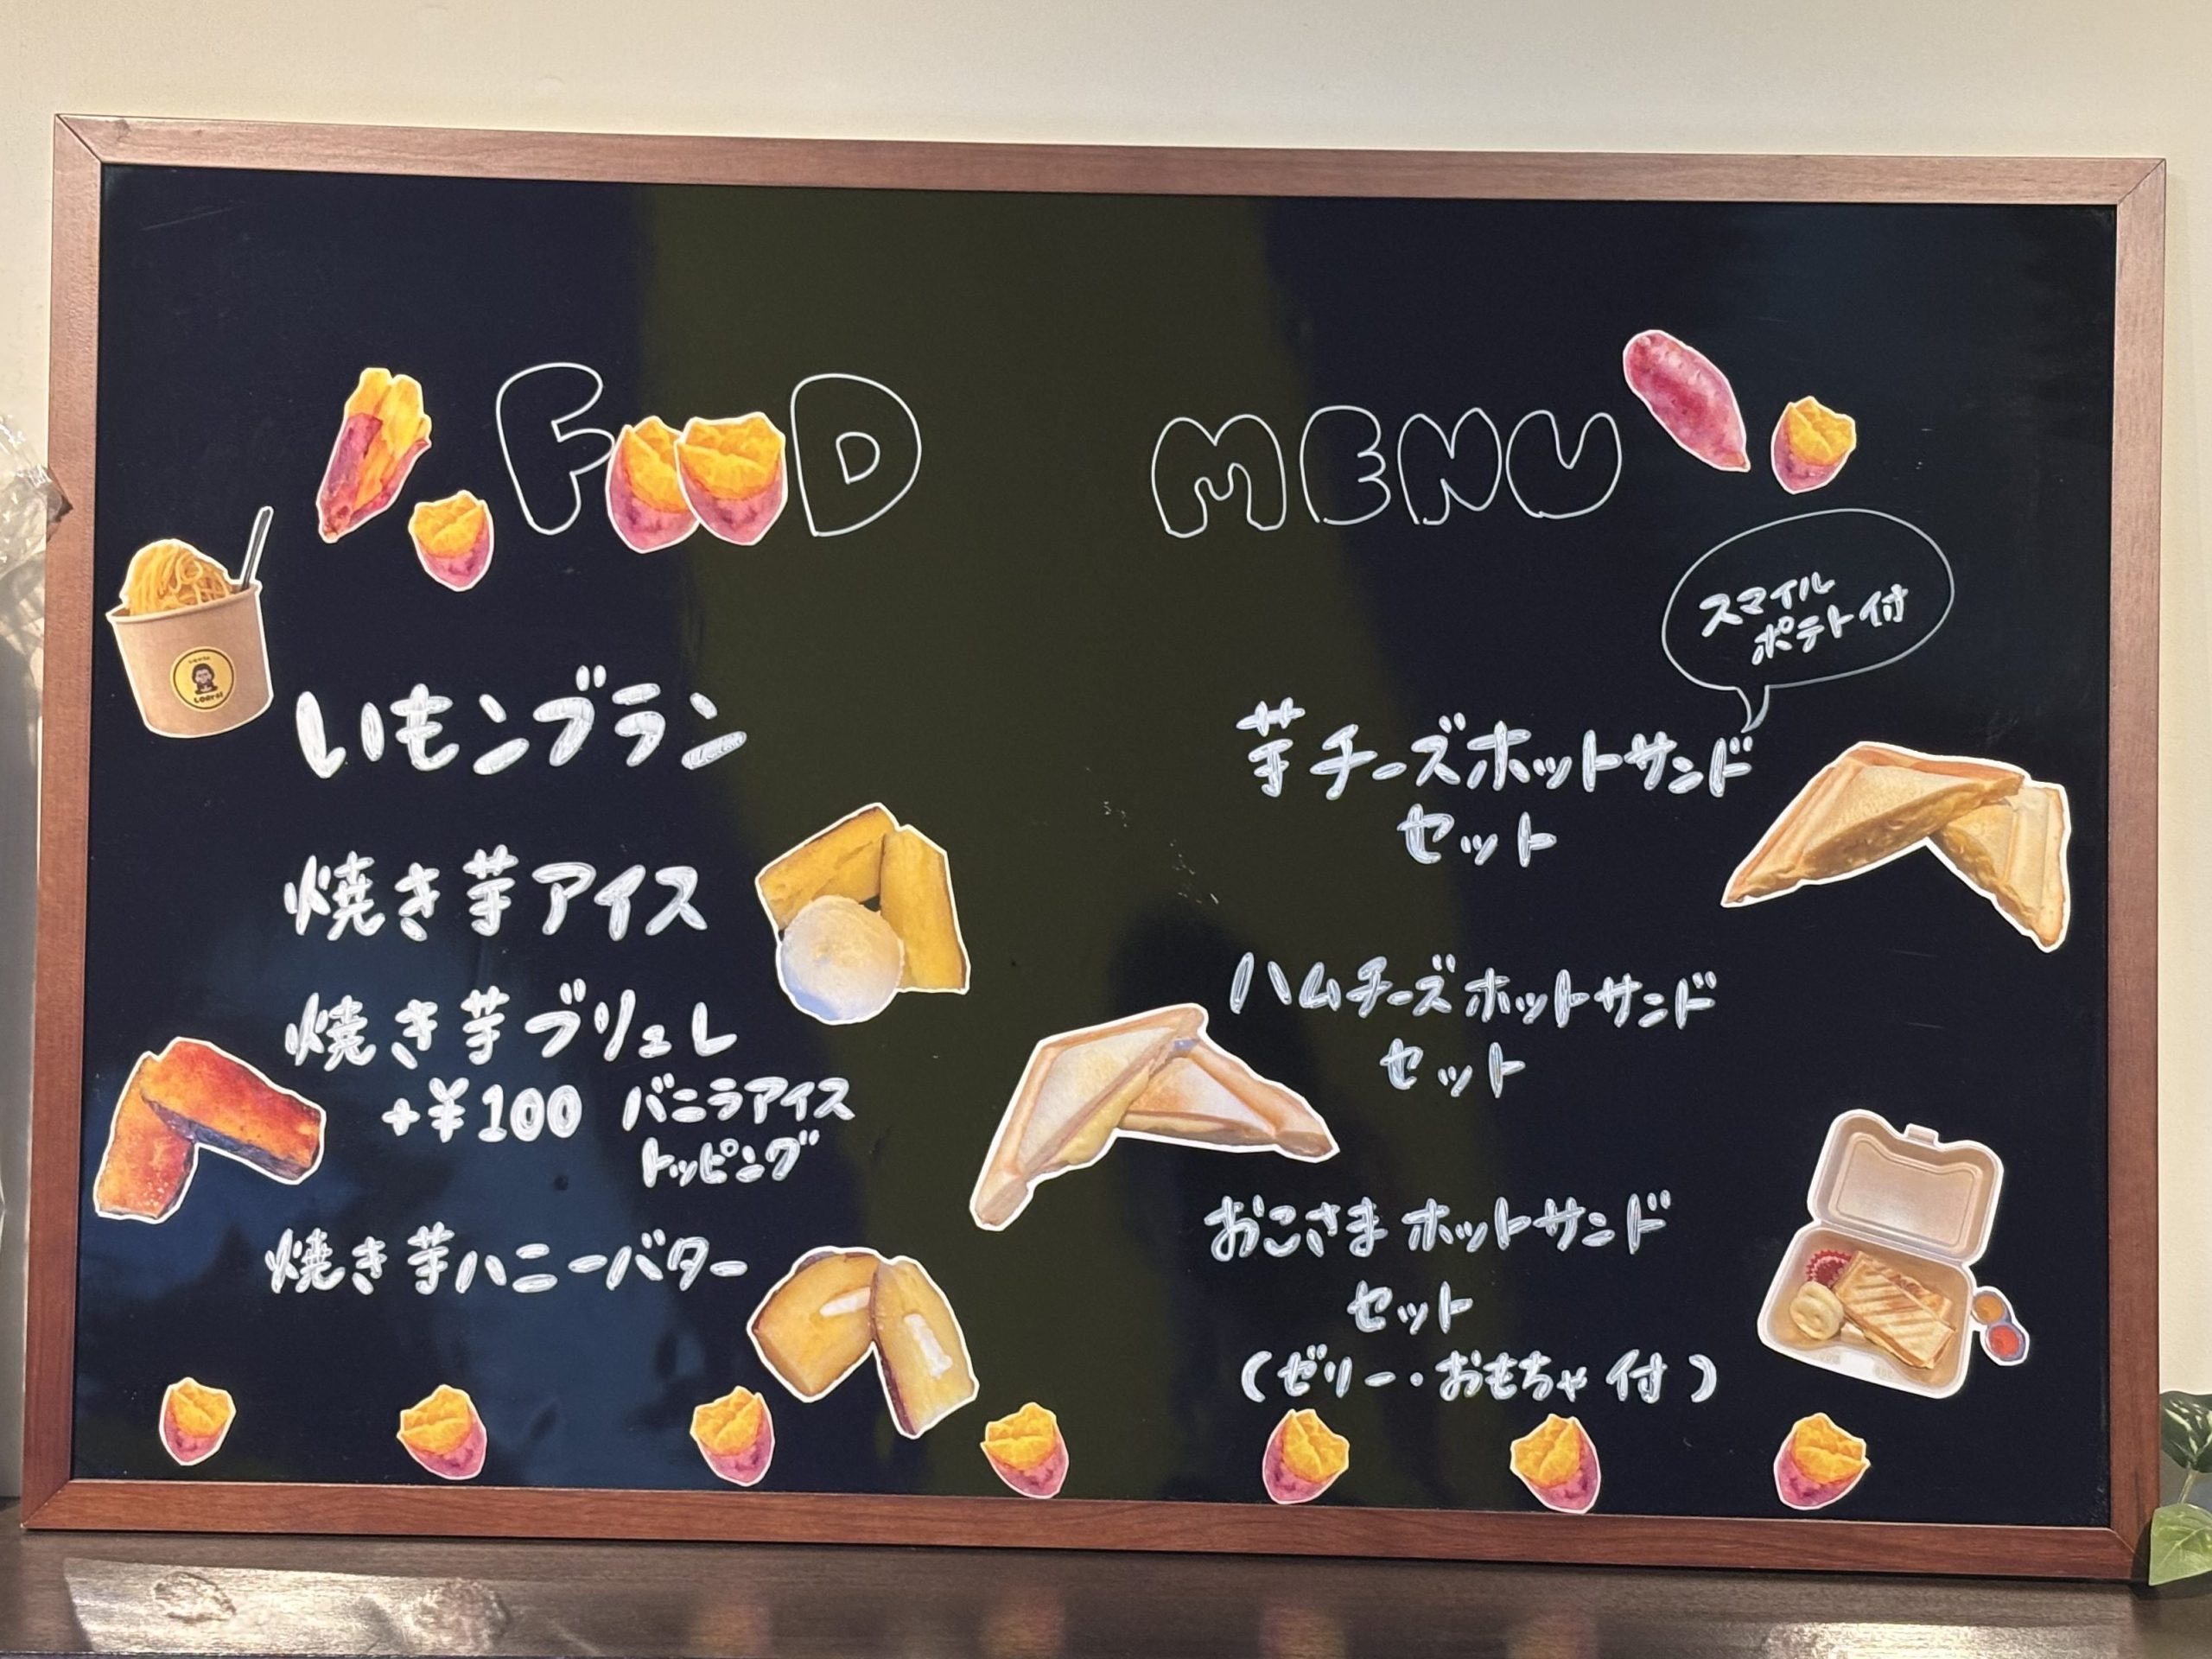 FOOD MENU
いもンブラン
焼き芋アイス
焼き芋ブリュレ
+¥100 バニラアイス
トッピング
焼き芋ハニーバター
スマイル
ポテト付
芋チーズホットサンド
セット
ハムチーズホットサンド
セット
おこさまホットサンド
セット
(ゼリー・おもちゃ付)